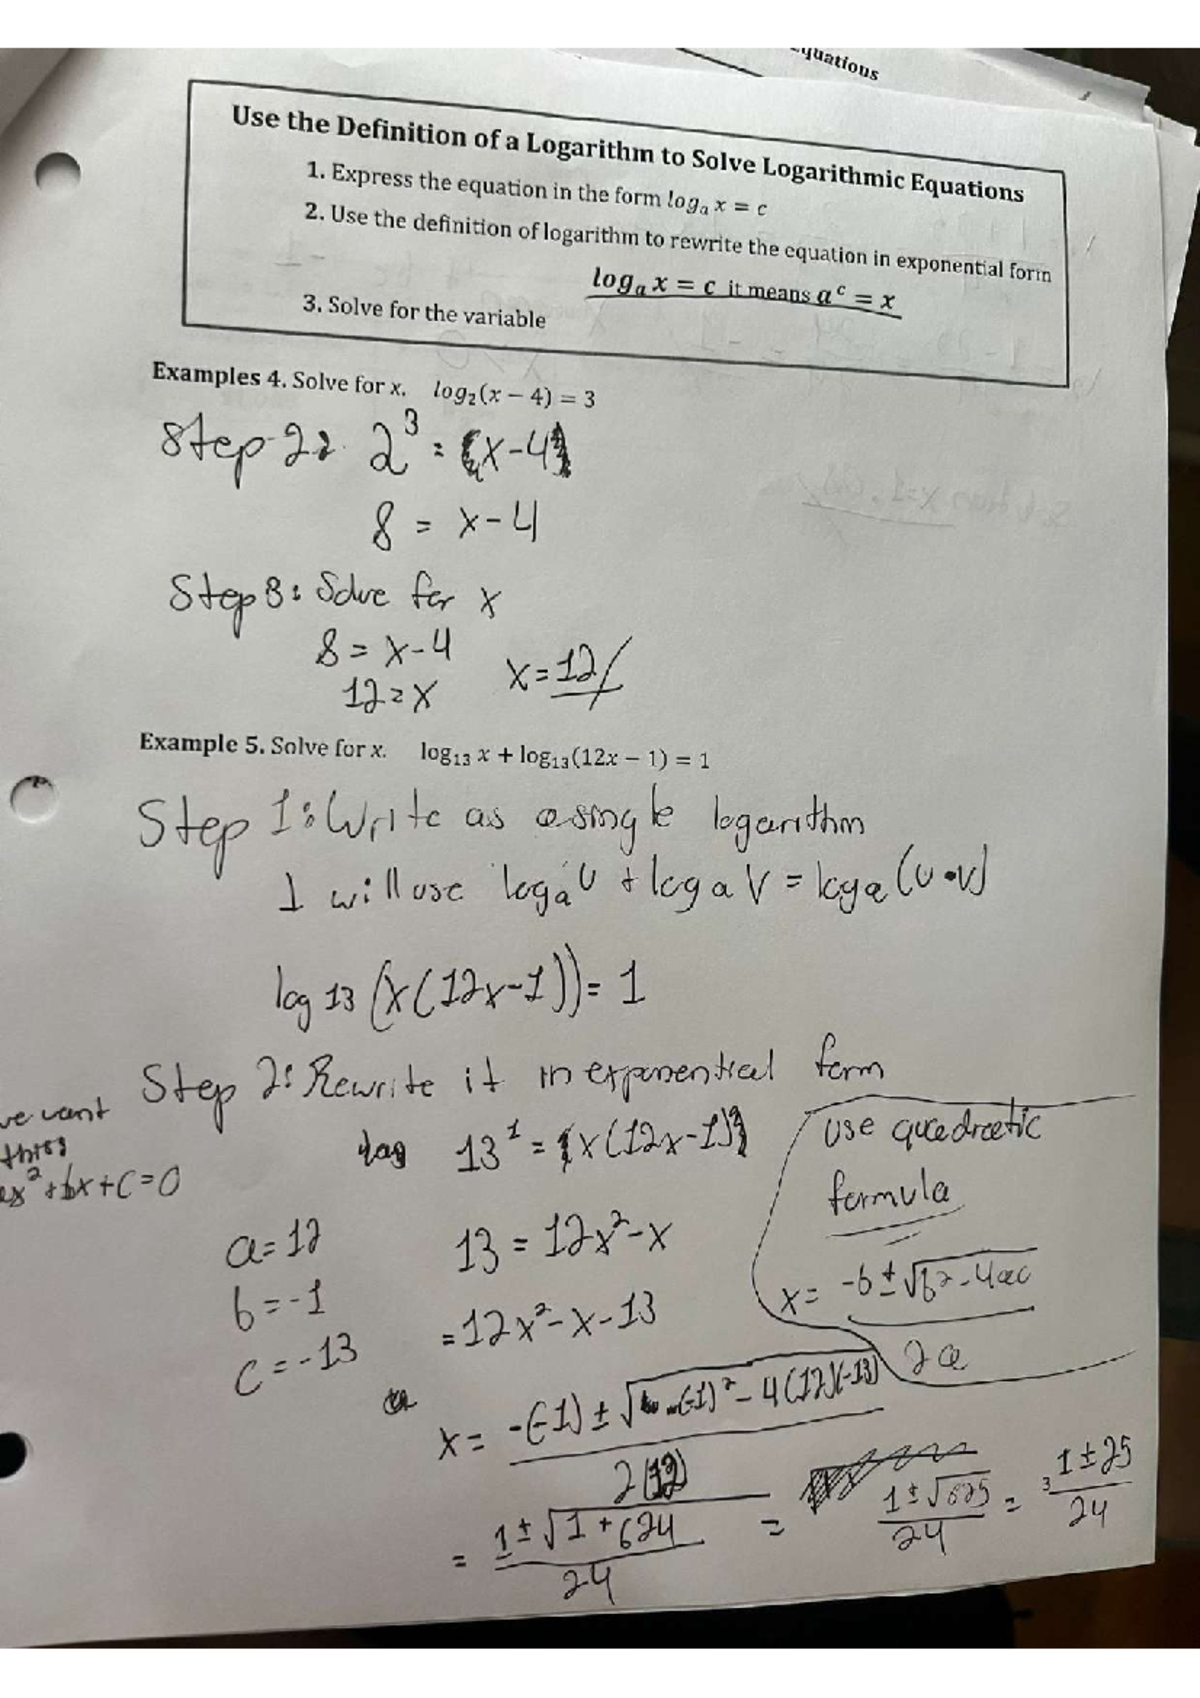 quations
Use the Definition of a Logarithm to Solve Logarithmic Equations
1. Express the equation in the form logₐ x = c
2. Use the definition of logarithm to rewrite the equation in exponential form
logₐ x = c it means aᶜ = x
3. Solve for the variable
Examples 4. Solve for x. log₂(x − 4) = 3
Step 2: 2³ = (x-4)
8 = x-4
Step 3: Solve for x
8 = x-4
12 = x x = 12
Example 5. Solve for x. log₁₃ x + log₁₃(12x − 1) = 1
Step 1: Write as a single logarithm
I will use logₐ U + log a V = logₐ (U•V)
log 13 (x(12x-1)) = 1
Step 2: Rewrite it in exponential form
we want
this
ax²+bx+c=0
13¹ = (x(12x-1))
use quadratic
formula
x = -b±√b²-4ac
2a
a=12
b=-1
c=-13
13 = 12x²-x
=12x²-x-13
x = -(-1) ± √(-1)² - 4(12)(-13)
2(12)
= 1 ± √1+624 = 1 ± √625 = 1±25
24 24 24